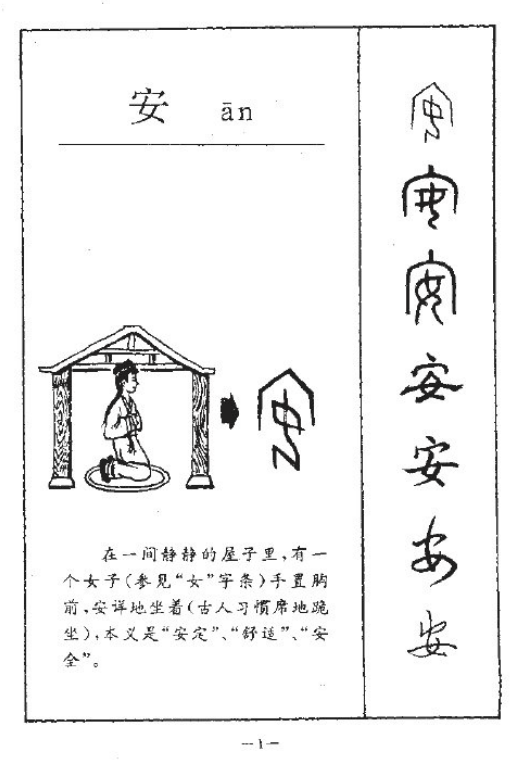 安 ān
在一间静静的屋子里,有一
个女子(参见“女”字条)手置胸
前,安详地坐着(古人习惯席地跪
坐),本义是“安定”、“舒适”、“安
全”。
安
安
安
安
安
安
安
安
—1—